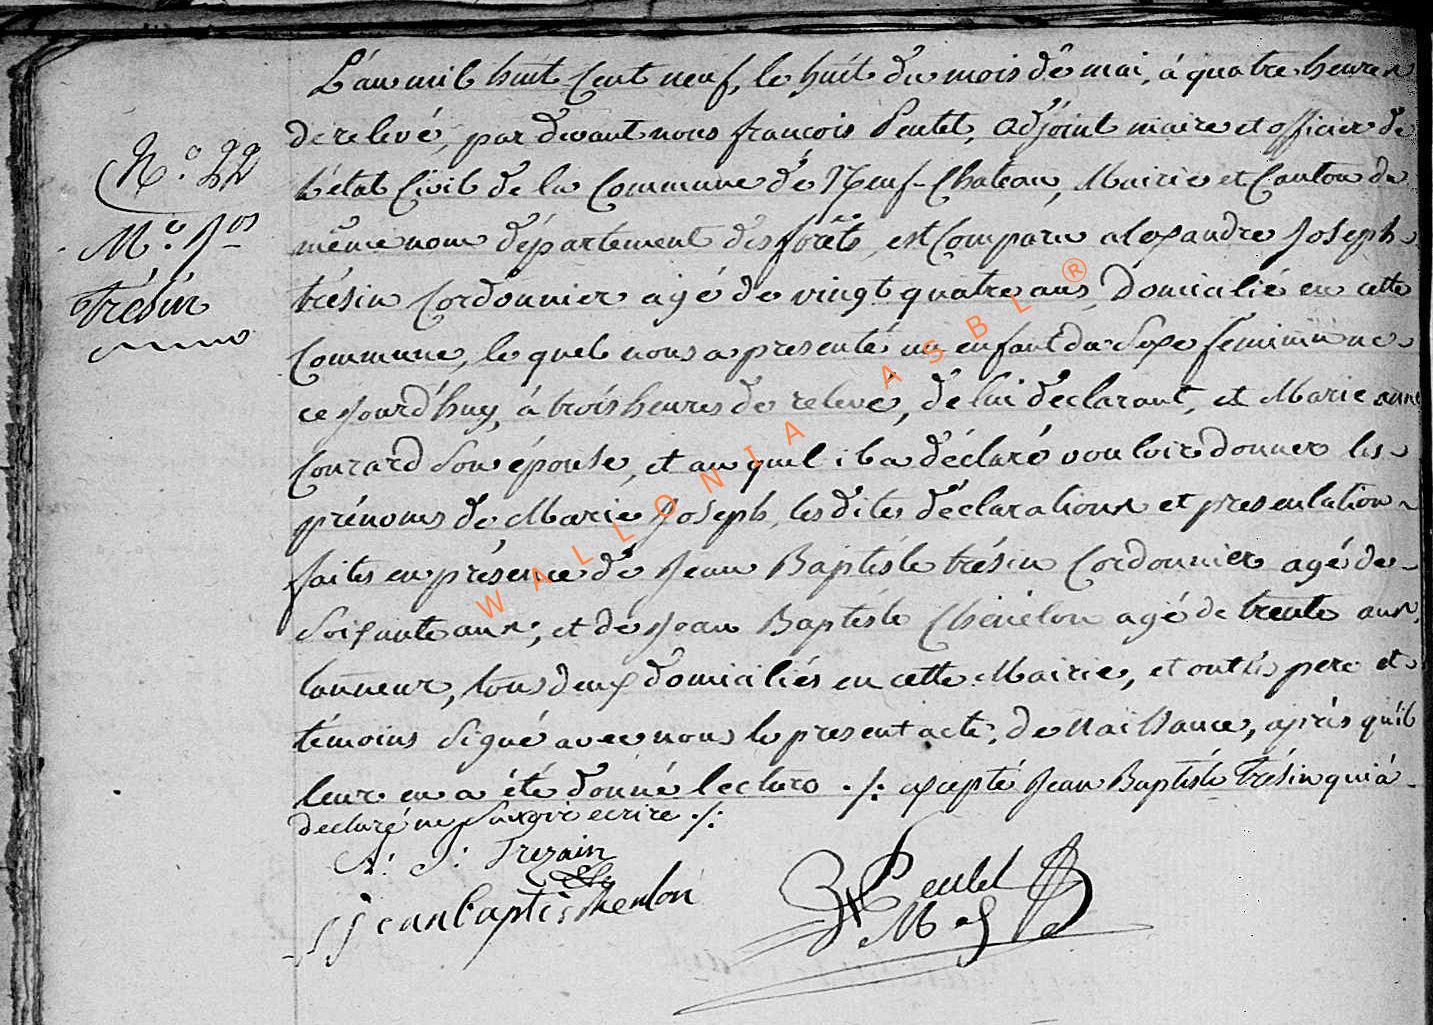 L'an mil huit Cent neuf, le huit du mois de mai, à quatre heures
de relevé, par devant nous françois Pentet, adjoint maire et officier de
L'état Civil de la Commune de Neuf-Chateau, Mairie et Canton du
même nom département des forêts, est Comparu alexandre Joseph
trésin Cordonnier agé de vingt quatre ans, Domicilié en cette
Commune, le quel nous a presenté un enfant du Sexe feminin né
ce jourd'huy, à trois heures de relevé, de lui déclarant, et Marie anne
Conrard Son épouse, et au quel il a déclaré vouloir donner les
prénoms de Marie Joseph, les dites déclarations et presentation
faites en présence de Jean Baptiste trésin Cordonnier agé de
Soixante ans; et de Jean Baptiste Chénélon agé de trente ans,
tanneur, tous deux domiciliés en cette Mairie, et ont les pere et
témoins Signé avec nous le present acte, de Naissance, après qu'il
leur en a été donné lecture ./. excepté Jean Baptiste Trésin qui à
declaré ne Savoir ecrire ./.
N.° 22
M.e Jos
Trésin
A: J: Trezain
Jean baptis
Pentet
WALLONIA ASBL ®